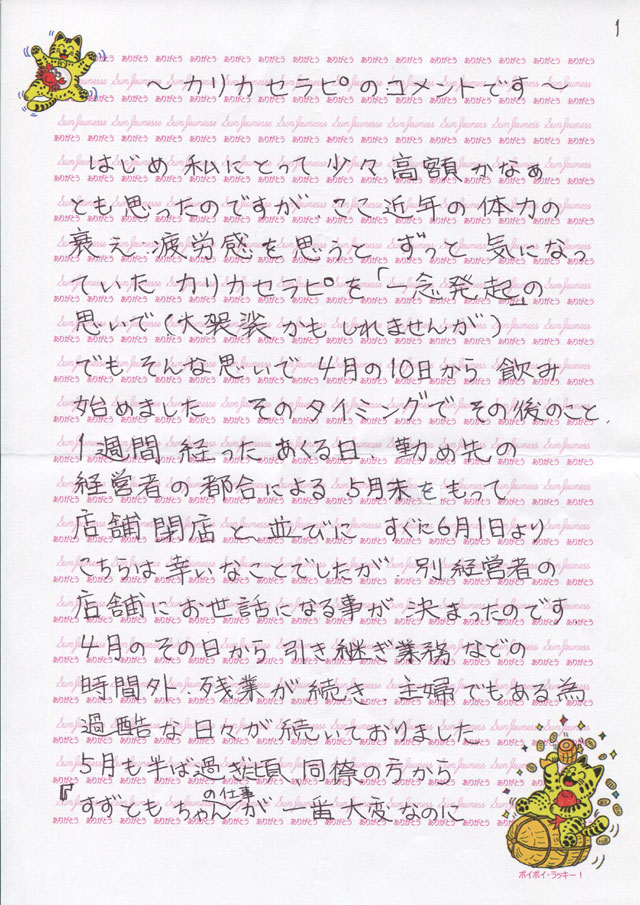 1
〜カリカセラピのコメントです〜
はじめ 私にとって 少々高額かなぁ
とも思ったのですが、ここ近年の体力の
衰え…疲労感を思うと ずっと 気になっ
ていた カリカセラピを「一念発起」の
思いで(大袈裟かもしれませんが)
でも そんな思いで 4月の10日から 飲み
始めました そのタイミングで その後のこと、
1週間 経った あくる日、勤め先の
経営者の都合による 5月末をもって
店舗閉店と、並びに すぐに6月1日より
こちらは 幸いなことでしたが 別経営者の
店舗に お世話になる事が 決まったのです
4月のその日から 引き継ぎ業務などの
時間外、残業が続き、主婦でもある為
過酷な日々が 続いておりました
5月も半ば過ぎた頃 同僚の方から
『すずともちゃんの仕事が 一番大変なのに
ポイポイ・ラッキー!